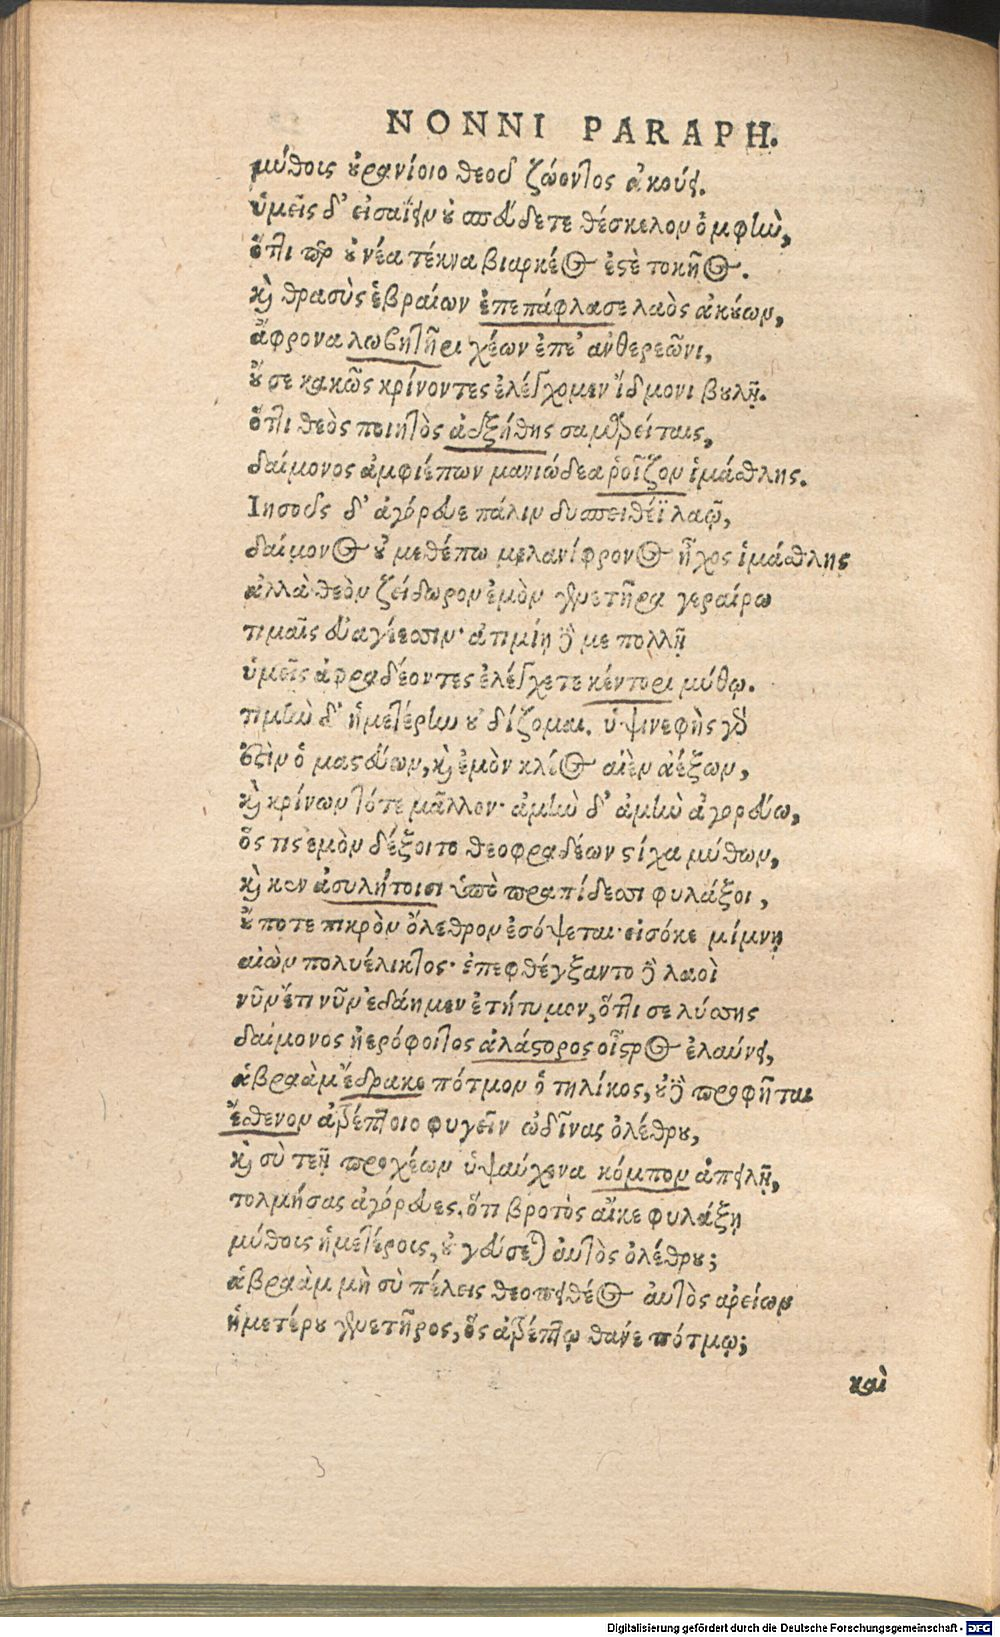 NONNI PARAPH.
μύθοις οὐρανίοιο θεοῦ ζώοντος ἀκούει.
ὑμεῖς δ' εἰσαΐειν οὐ σπεύδετε θέσκελον ὀμφὴν,
ὅττι περ οὐ νέα τέκνα βιαρκέος ἐστὲ τοκῆος.
καὶ θρασὺς ἑβραίων ἐπεπάφλασε λαὸς ἀκούων,
ἄφρονα λωβητῆρι χέων ἔπε' ἀνθερεῶνι,
οὔ σε κακῶς κρίνοντες ἐλέγχομεν ἴδμονι βουλῇ.
ὅττι θεὸς ποιητὸς ἀυξήθης σαμαρείταις,
δαίμονος ἀμφιέπων μανιώδεα ῥοῖζον ἱμάσθλης.
Ιησοῦς δ' ἀγόρευε πάλιν δυσπειθέϊ λαῷ,
δαίμονος οὐ μεθέπω μελανίφρονος ἦχος ἱμάσθλης
ἀλλὰ θεὸν ζείδωρον ἐμὸν γενετῆρα γεραίρω
τιμαῖς εὐαγέεσσιν· ἀτιμίῃ δέ με πολλῇ
ὑμεῖς ἀφραδέοντες ἐλέγχετε κέντορι μύθῳ.
τιμὴν δ' ἡμετέρην οὐ δίζομαι. ὑψινεφὴς γὰρ
ἔστὶν ὁ μαστεύων, καὶ ἐμὸν κλέος αἰὲν ἀέξων,
καὶ κρίνων τότε μᾶλλον· ἀμὴν δ' ἀμὴν ἀγορεύω,
ὅς τις ἐμὸν δέξοιτο θεοφραδέων στίχα μύθων,
καὶ κεν ἀσυλήτοισι ὑπὸ πραπίδεσσι φυλάξοι,
οὔ ποτε πικρὸν ὄλεθρον ἐσόψεται· εἰσόκε μίμνῃ
αἰὼν πολυέλικτος· ἐπεφθέγξαντο δὲ λαοὶ
νῦν ἔτι νῦν ἐδάημεν ἐτήτυμον, ὅττι σε λύσσης
δαίμονος ἠερόφοιτος ἀλάστορος οἶστρος ἐλαύνει,
ἀβραὰμ ἔδρακε πότμον ὁ τηλίκος, οὐδὲ προφῆται
ἔσθενον ἀτρέπτοιο φυγεῖν ὠδῖνας ὀλέθρου,
καὶ σὺ τεῇ προχέων ὑψαύχενα κόμπον ἀπειλῇ,
τολμήσας ἀγόρευες. ὅτι βροτὸς αἴκε φυλάξῃ
μύθοις ἡμετέροις, οὐ γεύσεται αὐτὸς ὀλέθρου;
ἀβραὰμ μὴ σὺ πέλεις θεοπειθέος αὐτὸς ἀρείων
ἡμετέρου γενετῆρος, ὃς ἀτρέπτῳ θάνε πότμῳ;
καὶ
Digitalisierung gefördert durch die Deutsche Forschungsgemeinschaft - DFG